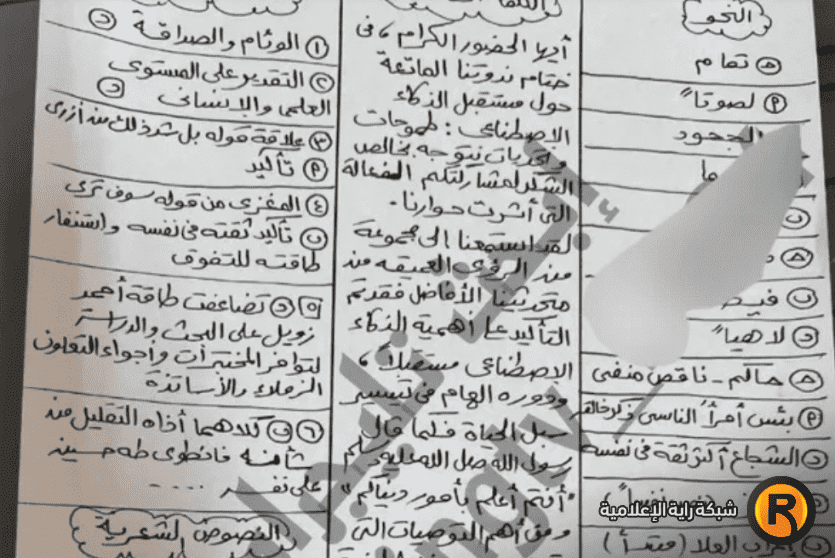 النحو
ⓐ تمام
ⓟ لصوتاً
الجحود
ما
ⓑ
ⓐ
ⓑ فيـ
ⓓ لاهياً
ⓐ حاكم - ناقص منفى
ⓟ بئس أمرأ الناسى ذكر خالقه
ⓓ الشجاع أكثر ثقة فى نفسه
نفساً )
العلا ( مبتدأ )
أيها الحضور الكرام ، فى
ختام ندوتنا الماتعة
حول مستقبل الذكاء
الاصطناعى : طموحات
وتحديات نتوجه بخالص
الشكر لمشاركتكم الفعالة
التى أثرت حوارنا .
لقد استمعنا الى مجموعة
من الرؤى العميقه من
متحدثينا الأفاضل فقد تم
التأكيد على أهمية الذكاء
الاصطناعى مستقبلاً ،
ودوره الهام فى تيسير
سبل الحياة فكما قال
رسول الله صل الله عليه وسلم
" أنتم أعلم بأمور دنياكم "
ومن أهم التوصيات التى
① الوئام والصداقة ⓓ
② التقدير على المستوى
العلمى والإنسانى ⓓ
③ علاقة قوله بل شد ذلك من أزرى
ⓟ تأكيد
④ المغزى من قوله سوف ترى
ⓑ تأكيد ثقته فى نفسه واستنفار
طاقته للتفوق
⑤ ⓓ تضاعفت طاقة أحمد
زويل على البحث والدراسة
لتوافر المختبرات وأجواء التعاون
الزملاء والأساتذة
⑥ ⓑ كلاهما أذاه التقليل من
شأنه فانطوى طه حسين
على نفسه . . . . .
النصوص الشعرية
شبكة راية الإعلامية
R